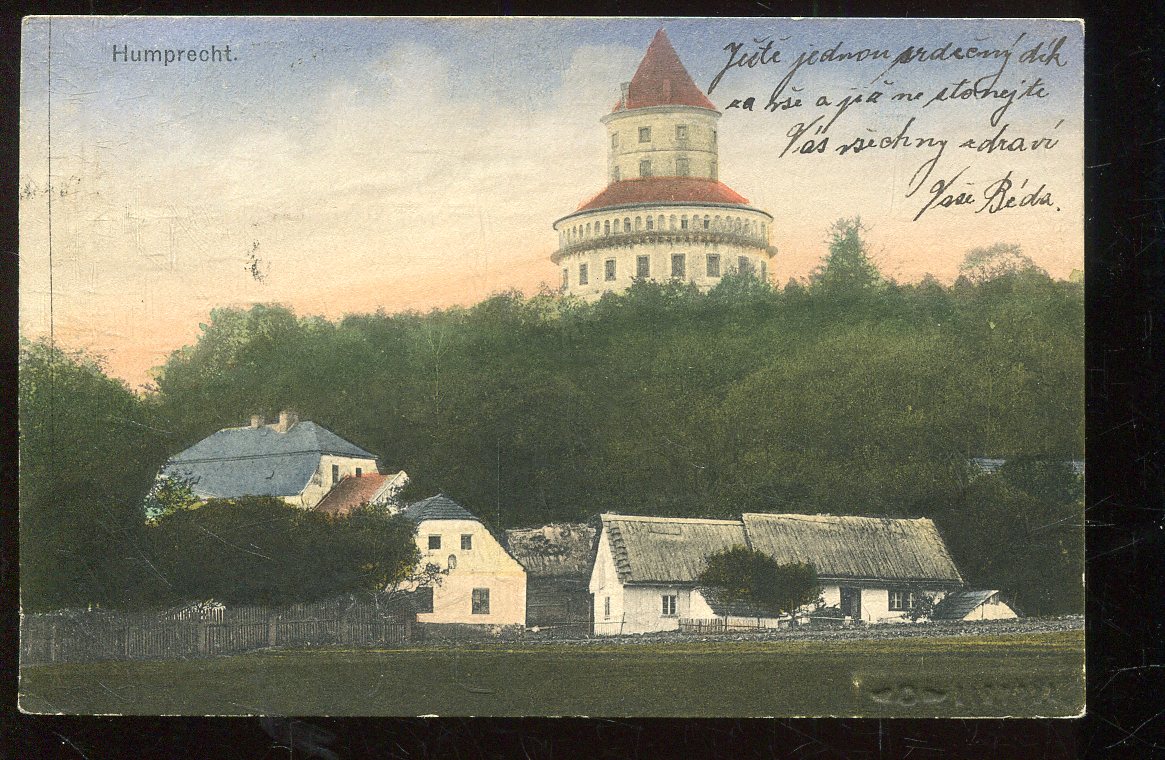 Humprecht.
Ještě jednou srdečný dík
za vše a již ne stonejte
Vás všechny zdraví
Vaše Béda.